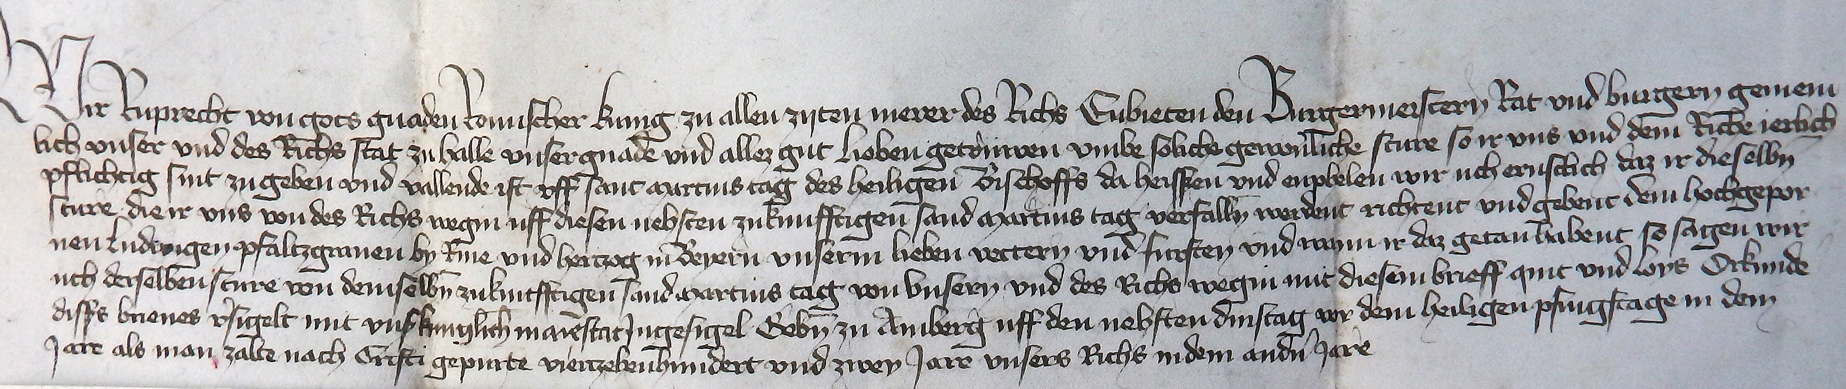 Wir Ruprecht von gots gnaden Romischer kunig zu allen zijten merer des Richs Enbieten den Burgermeistern Rat und burgern gemein
lich unser und des Richs stat zu halle unser gnade und allez gut Lieben getruwen umbe soliche gewonliche sture so ir uns und dem Riche ierlich
pflichtig sint zu geben und vallende ist uff sant martins tag des heiligen Bischoffs da heissen und enphelen wir uch ernstlich daz ir dieselbn
sture die ir uns von des Richs wegin uff diesen nehsten zukunfftigen sand martins tag verfalln werdent richtent und gebent dem hochgepor
nen Ludwigen pfaltzgraven by Rine und hertzog in Beyern unserm lieben vettern und fursten und wann ir daz getan habent so sagen wir
uch derselben sture von demselbn zukunfftigen sand martins tag von unsern und des Richs wegin mit diesem brieff quit und loys Orkunde
diss brieves vsigelt mit uns kunglich maiestat Ingesigel Gebn zu Amberg uff den nehsten dinstag vor dem heiligen pfingstage in dem
Jare als man zalte nach Cristi gepurte viertzehenhundert und zwey Jare unsers Richs in dem andn Jare